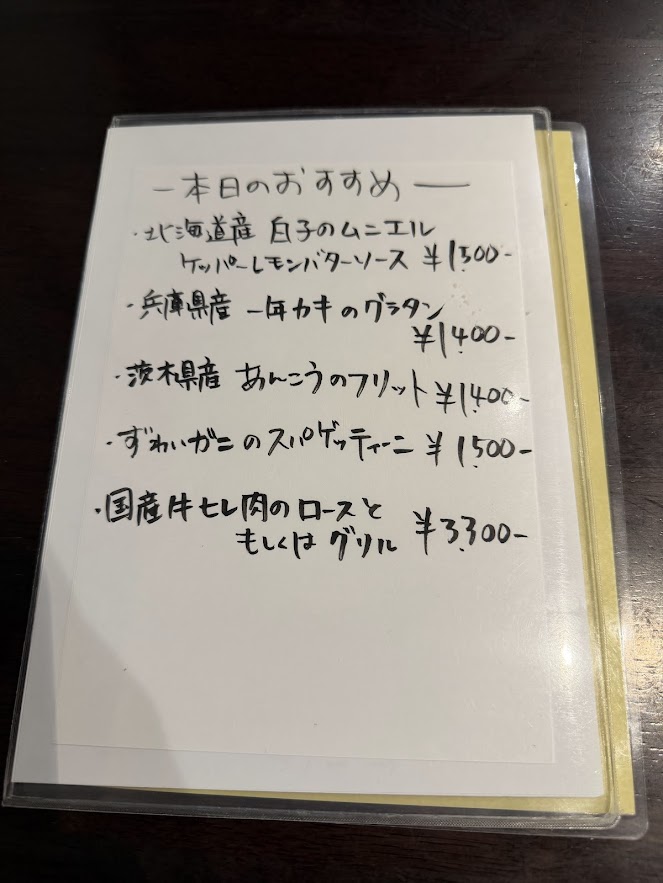 ー本日のおすすめー
・北海道産 白子のムニエル
ケッパーレモンバターソース ¥1,500-
・兵庫県産 一年カキのグラタン
¥1,400-
・茨木県産 あんこうのフリット ¥1,400-
・ずわいガニのスパゲッティーニ ¥1,500-
・国産牛ヒレ肉のロースと
もしくは グリル ¥3,300-